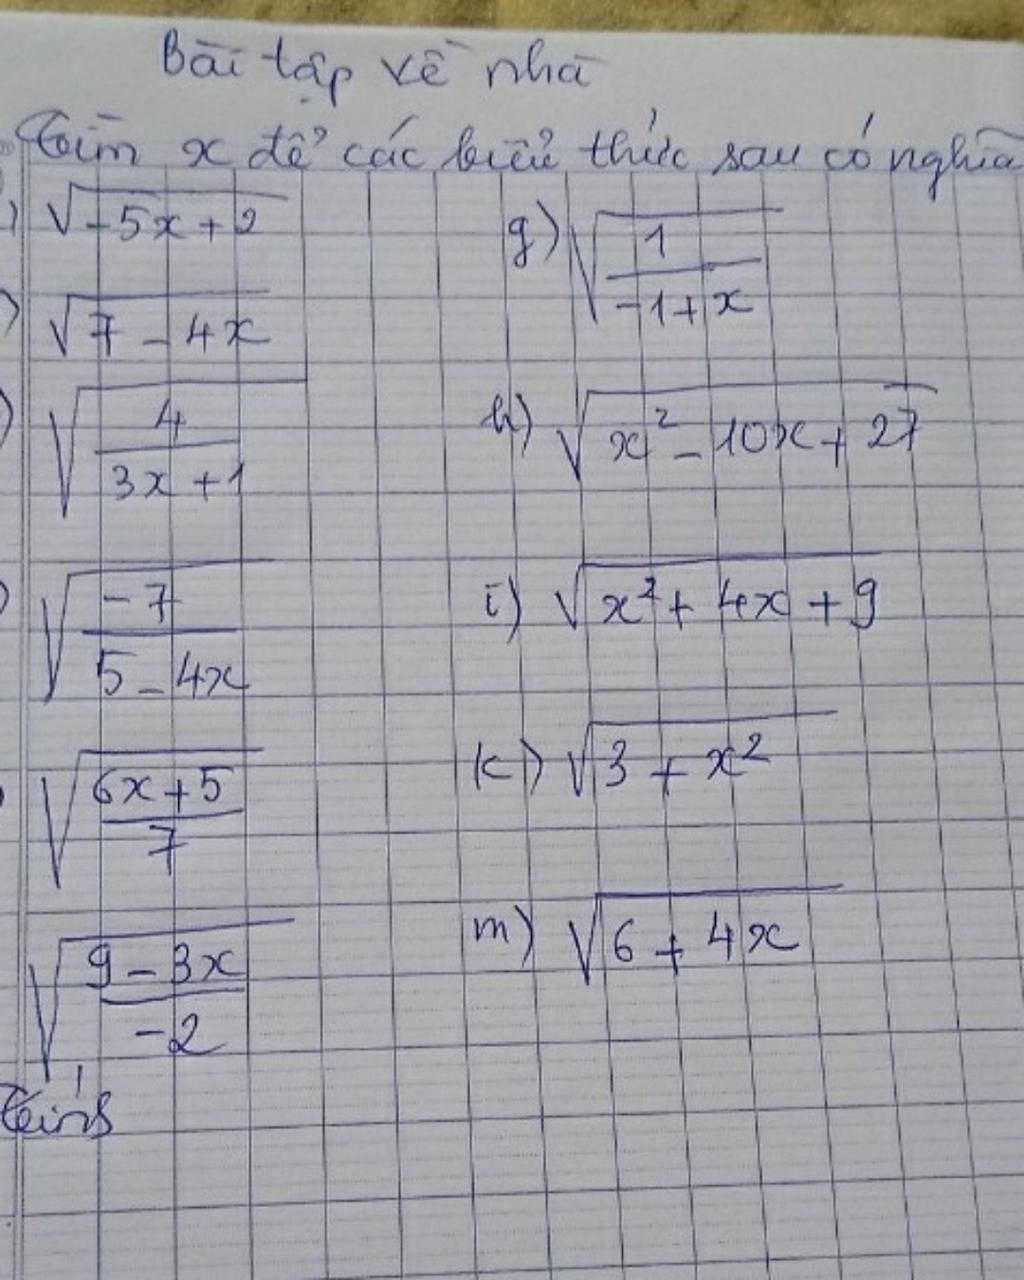 Bài tập về nhà
Tìm x để các biểu thức sau có nghĩa
) √-5x+2
) √7-4x
) √4/(3x+1)
) √-7/(5-4x)
√(6x+5)/7
√(9-3x)/-2
g) √1/(-1+x)
h) √x²-10x+27
i) √x²+4x+9
k) √3+x²
m) √6+4x
Tính